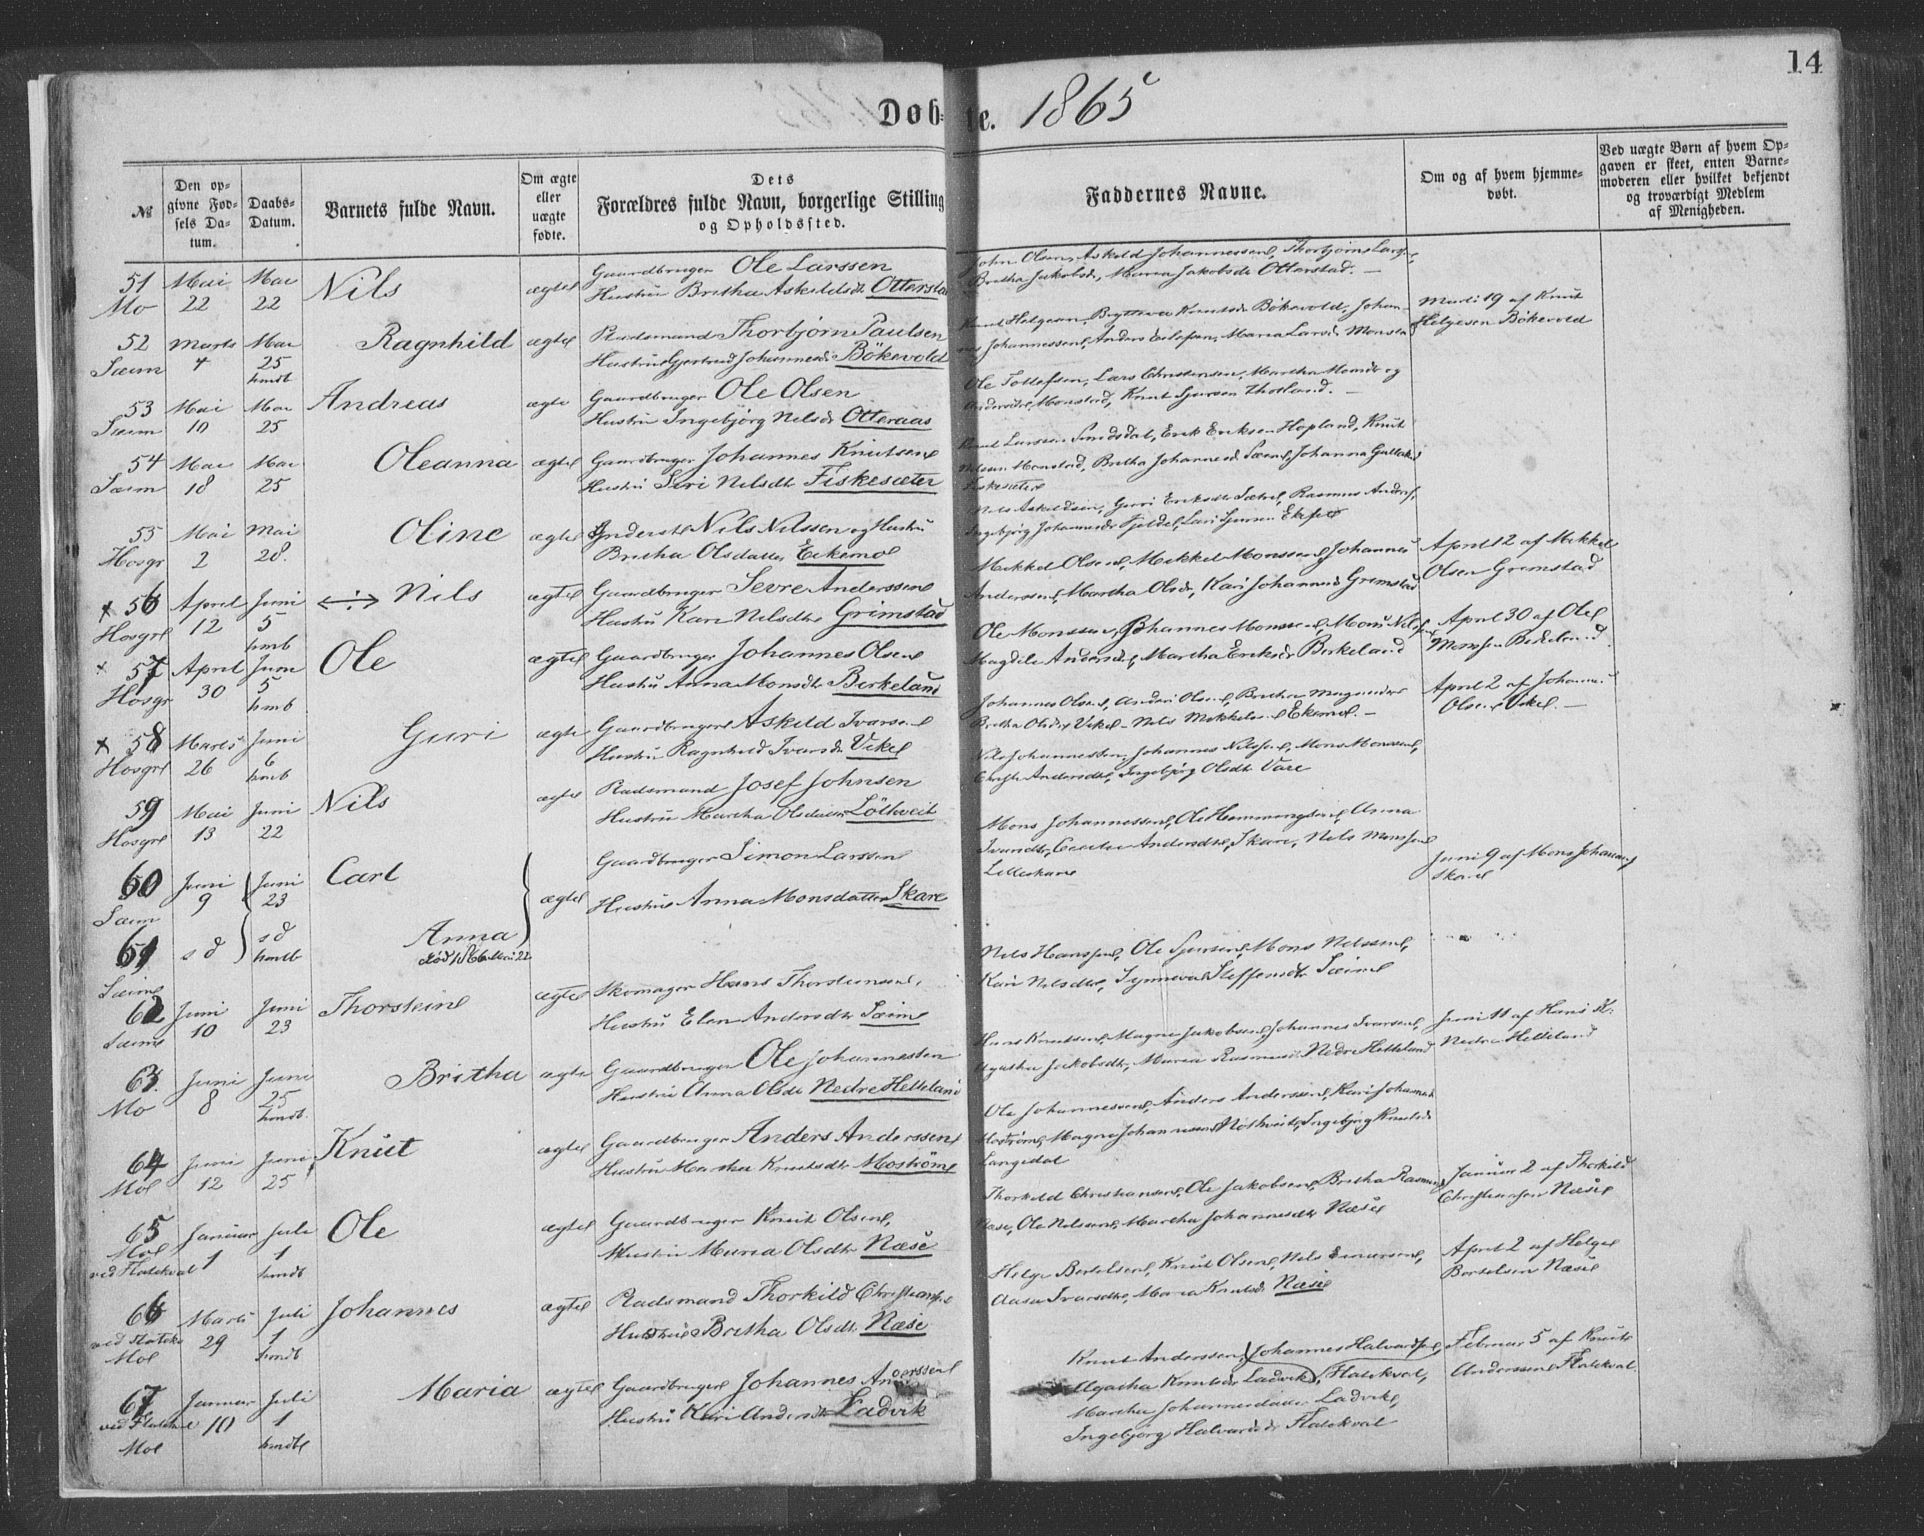 14
Døb- te. 1865
№
Den op-
givne Fød-
sels Da-
tum.
Daabs-
Datum.
Barnets fulde Navn.
Om ægte
eller
uægte
fødte.
Dets
Forældres fulde Navn, borgerlige Stilling
og Opholdssted.
Faddernes Navne.
Om og af hvem hjemme-
døbt.
Ved uægte Børn af hvem Op-
gaven er skeet, enten Barne-
moderen eller hvilket bekjendt
og troværdigt Medlem
af Menigheden.
51 Mai Mai Nils ægte Gaardbruger Ole Larssen
Mo 22 22 Hustru Britha Askildsdt Otterstad
John Olsen, Askild Johannessen, Thorbjørn Larss,
Britha Jakobsdt, Maria Jakobsdt Otterstad. —
52 Marts Mai Ragnhild ægte Pladsmand Thorbjørn Paulsen
Sæim 4 25 Hustru Gjertrud Johannesdt Bökevold
hmdt
Knut Helgesen, Brytteva Knutsdt Bökevold, Johan-
nes Johannessen, Anders Ellefsen, Maria Larsdt Monstad
Marts 19 af Knut
Helgesen Bökevold
53 Mai Mai Andreas ægte Gaardbruger Ole Olsen
Sæim 10 25 Hustru Ingebjörg Nilsdt Otteraas
Ole Tollefsen, Lars Christensen, Martha Monsdt og
Andersdt Monstad, Knut Sjursen Thotland. —
54 Mai Mai Oleanna ægte Gaardbruger Johannes Knutsen
Sæim 18 25 Hustru Siri Nilsdt Fiskesæter
Knut Larssen Smedsdal, Erik Eriksen Hopland, Knut
Nilsen Monstad, Britha Johannesdt Sæim, Johanna
Fiskesæter
55 Mai Mai Oline ægte Inderst Nils Nilssen og Hustru
Hosgr 2 28. Britha Olsdatter Eckemo
Nils Askildsen, Guri Eriksdt Sætre, Rasmus Anders,
Ingebjörg Johannesdt Fjeldel, Lars Sjursen
x 56 April Juni Nils ægte Gaardbruger Sevre Anderssen
Hosgr 12 5 Hustru Kari Nilsdt Grimstad
hmb
Mikkel Olsen, Mikkel Monssen, Johannes
Anderssen, Martha Olsdt, Kari Johannesd Grimstad
April 12 af Mikkel
Olsen Grimstad
x 57 April Juni Ole ægte Gaardbruger Johannes Olsen
Hosgr 30 5 Hustru Anna Monsdt Birkeland
hmb
Ole Monssen, Johannes Monssen, Mons Nilss
Magdeli Andersdt, Martha Eriksdt Birkeland
April 30 af Ole
Monssen Birkeland
x 58 Marts Juni Guri ægte Gaardbruger Askild Ivarsen
Hosgr 26 6 Hustru Ragnhild Ivarsdt Vikel
hmb
Johannes Olsen, Anders Olsen, Britha Magnesdt
Britha Olsdt Vikel — Nils Mikkelsen Ekemo. —
April 2 af Johannes
Olsen Vikel. —
59 Mai Juni Nils ægte Pladsmand Josef Johnsen
Hosgr 13 22 Hustru Martha Olsdatter Löthveit
Nils Johannessen, Johannes Nilssen, Mons Monssen,
Andersdt, Ingebjörg Olsdt Vare
60 Juni Juni Carl Gaardbruger Simon Larssen
Sæim 9 23 ægte Hustru Anna Monsdatter Skare
Mons Johannessen, Ole Hemmingsen, Anna
Ivarsdt, Cecilie Andersdt, Skare, Nils Monssen
Lilleskare
Juni 9 af Mons Johannes
Skare
61 sd sd Anna
Sæim hmdt
62 Juni Juni Thorstein ægte Skomager Hans Thorsteinsen,
Sæim 10 23 Hustru Elen Andersdt Sæim
Nils Hanssen, Ole Sjursen, Mons Nilssen,
Kari Nilsdt, Synneva Steffensdt Sæim
63 Juni Juni Britha ægte Gaardbruger Ole Johannessen
Mo 8 25 Hustru Anna Olsdt Nedre Helleland
hmdt.
Hans Knutssen, Magne Jakobsen, Johannes Ivarsen,
Agatha Jakobsdt, Maria Rasmusd Nedre Helleland
Juni 11 af Hans K.
Nedre Helleland
64 Juni Juni Knut ægte Gaardbruger Anders Anderssen
Mo 12 25 Hustru Martha Knutsdt Moström
Ole Johannessen, Anders Anderssen, Kari Johannesdt
Moström, Magne Johannessen Nöthveit, Ingebjörg Knutsdt
Langedal
65 Januar Juli Ole ægte Gaardbruger Knut Olsen,
Mo
ved Flatekval 1 1 Hustru Maria Olsdt Næse
hmdt
Thorkild Christiansen, Ole Jakobsen, Britha Rasmusd
Næse, Ole Nilsen, Martha Johannesdt Næse
Januar 2 af Thorkild
Christiansen Næse
66 Marts Juli Johannes ægte Pladsmand Thorkild Christianssen
ved Flatekv 29 1 Hustru Britha Olsdt Næse
Mo hmdt
Helge Bertelsen, Knut Olsen, Nils Einarsen,
Aasa Ivarsdt, Maria Knutsdt Næse
April 2 af Helge
Bertelsen Næse
67 Januar Juli Maria ægte Gaardbruger Johannes Anderssen
ved Flatekval 10 1 Hustru Kari Andersdt Ladvik
Mo hmdt
Knut Anderssen, Johannes Halvardsen,
Agatha Knutsdt Ladvik, Flatekval,
Martha Johannesdatter Ladvik,
Ingebjörg Halvardsdt Flatekval
Februar 5 af Knut
Anderssen Flatekval